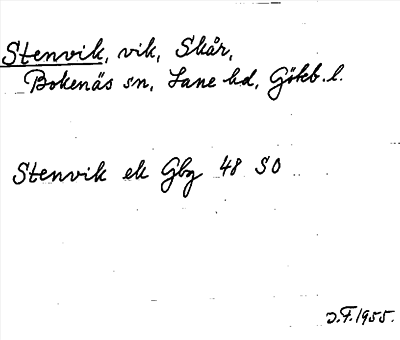 Stenvik, vik, Skår,
Bokenäs sn, Lane hd, Göteb. l.
Stenvik ek Gbg 48 SO
J.F. 1955.